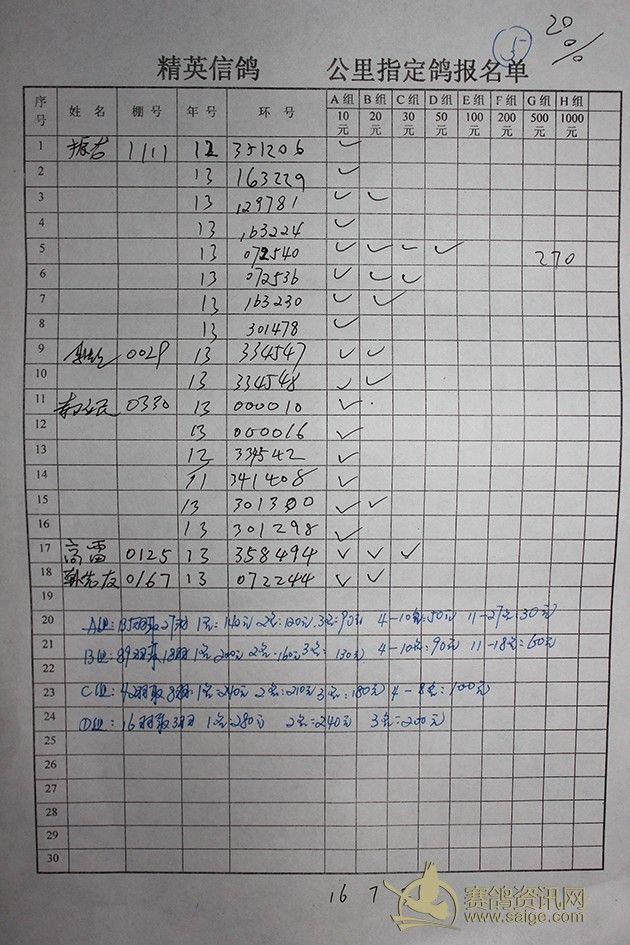 20%
5
精英信鸽 公里指定鸽报名单
序号 姓名 棚号 年号 环号 A组 B组 C组 D组 E组 F组 G组 H组
10元 20元 30元 50元 100元 200元 500元 1000元
1 1111 12 351206 ✓
2 13 163229 ✓
3 13 129781 ✓ ✓
4 13 163224 ✓
5 13 072540 ✓ ✓ ✓ ✓ 270
6 13 072536 ✓ ✓ ✓
7 13 163230 ✓ ✓
8 13 301478 ✓
9 0029 13 334547 ✓ ✓
10 13 334548 ✓ ✓
11 0330 13 000010 ✓
12 13 000016 ✓
13 12 334542 ✓
14 11 341408 ✓
15 13 301300 ✓ ✓
16 13 301298 ✓
17 高雷 0125 13 358494 ✓ ✓ ✓
18 0167 13 072244 ✓ ✓
19
20 A组:135羽取27羽 1名:140元 2名:120元 3名:90元 4-10名:50元 11-27名:30元
21
22 B组:89羽取18羽 1名:200元 2名:160元 3名:130元 4-10名:90元 11-18名:60元
23 C组:42羽取8羽 1名:240元 2名:210元 3名:180元 4-8名:100元
24 D组:16羽取3羽 1名:280元 2名:240元 3名:200元
25
26
27
28
29
30
16 7
赛鸽资讯网
www.saige.com